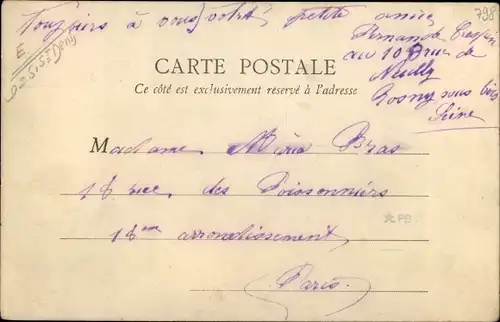 Toujours à vous votre petite amie
Fernande
au 10 rue de
Neuilly
Rosny sous bois
Seine
798
E
D=S=St Deny
CARTE POSTALE
Ce côté est exclusivement réservé à l'adresse
Madame Bras
18 rue des Poissonniers
18me arrondissement
Paris.
PB